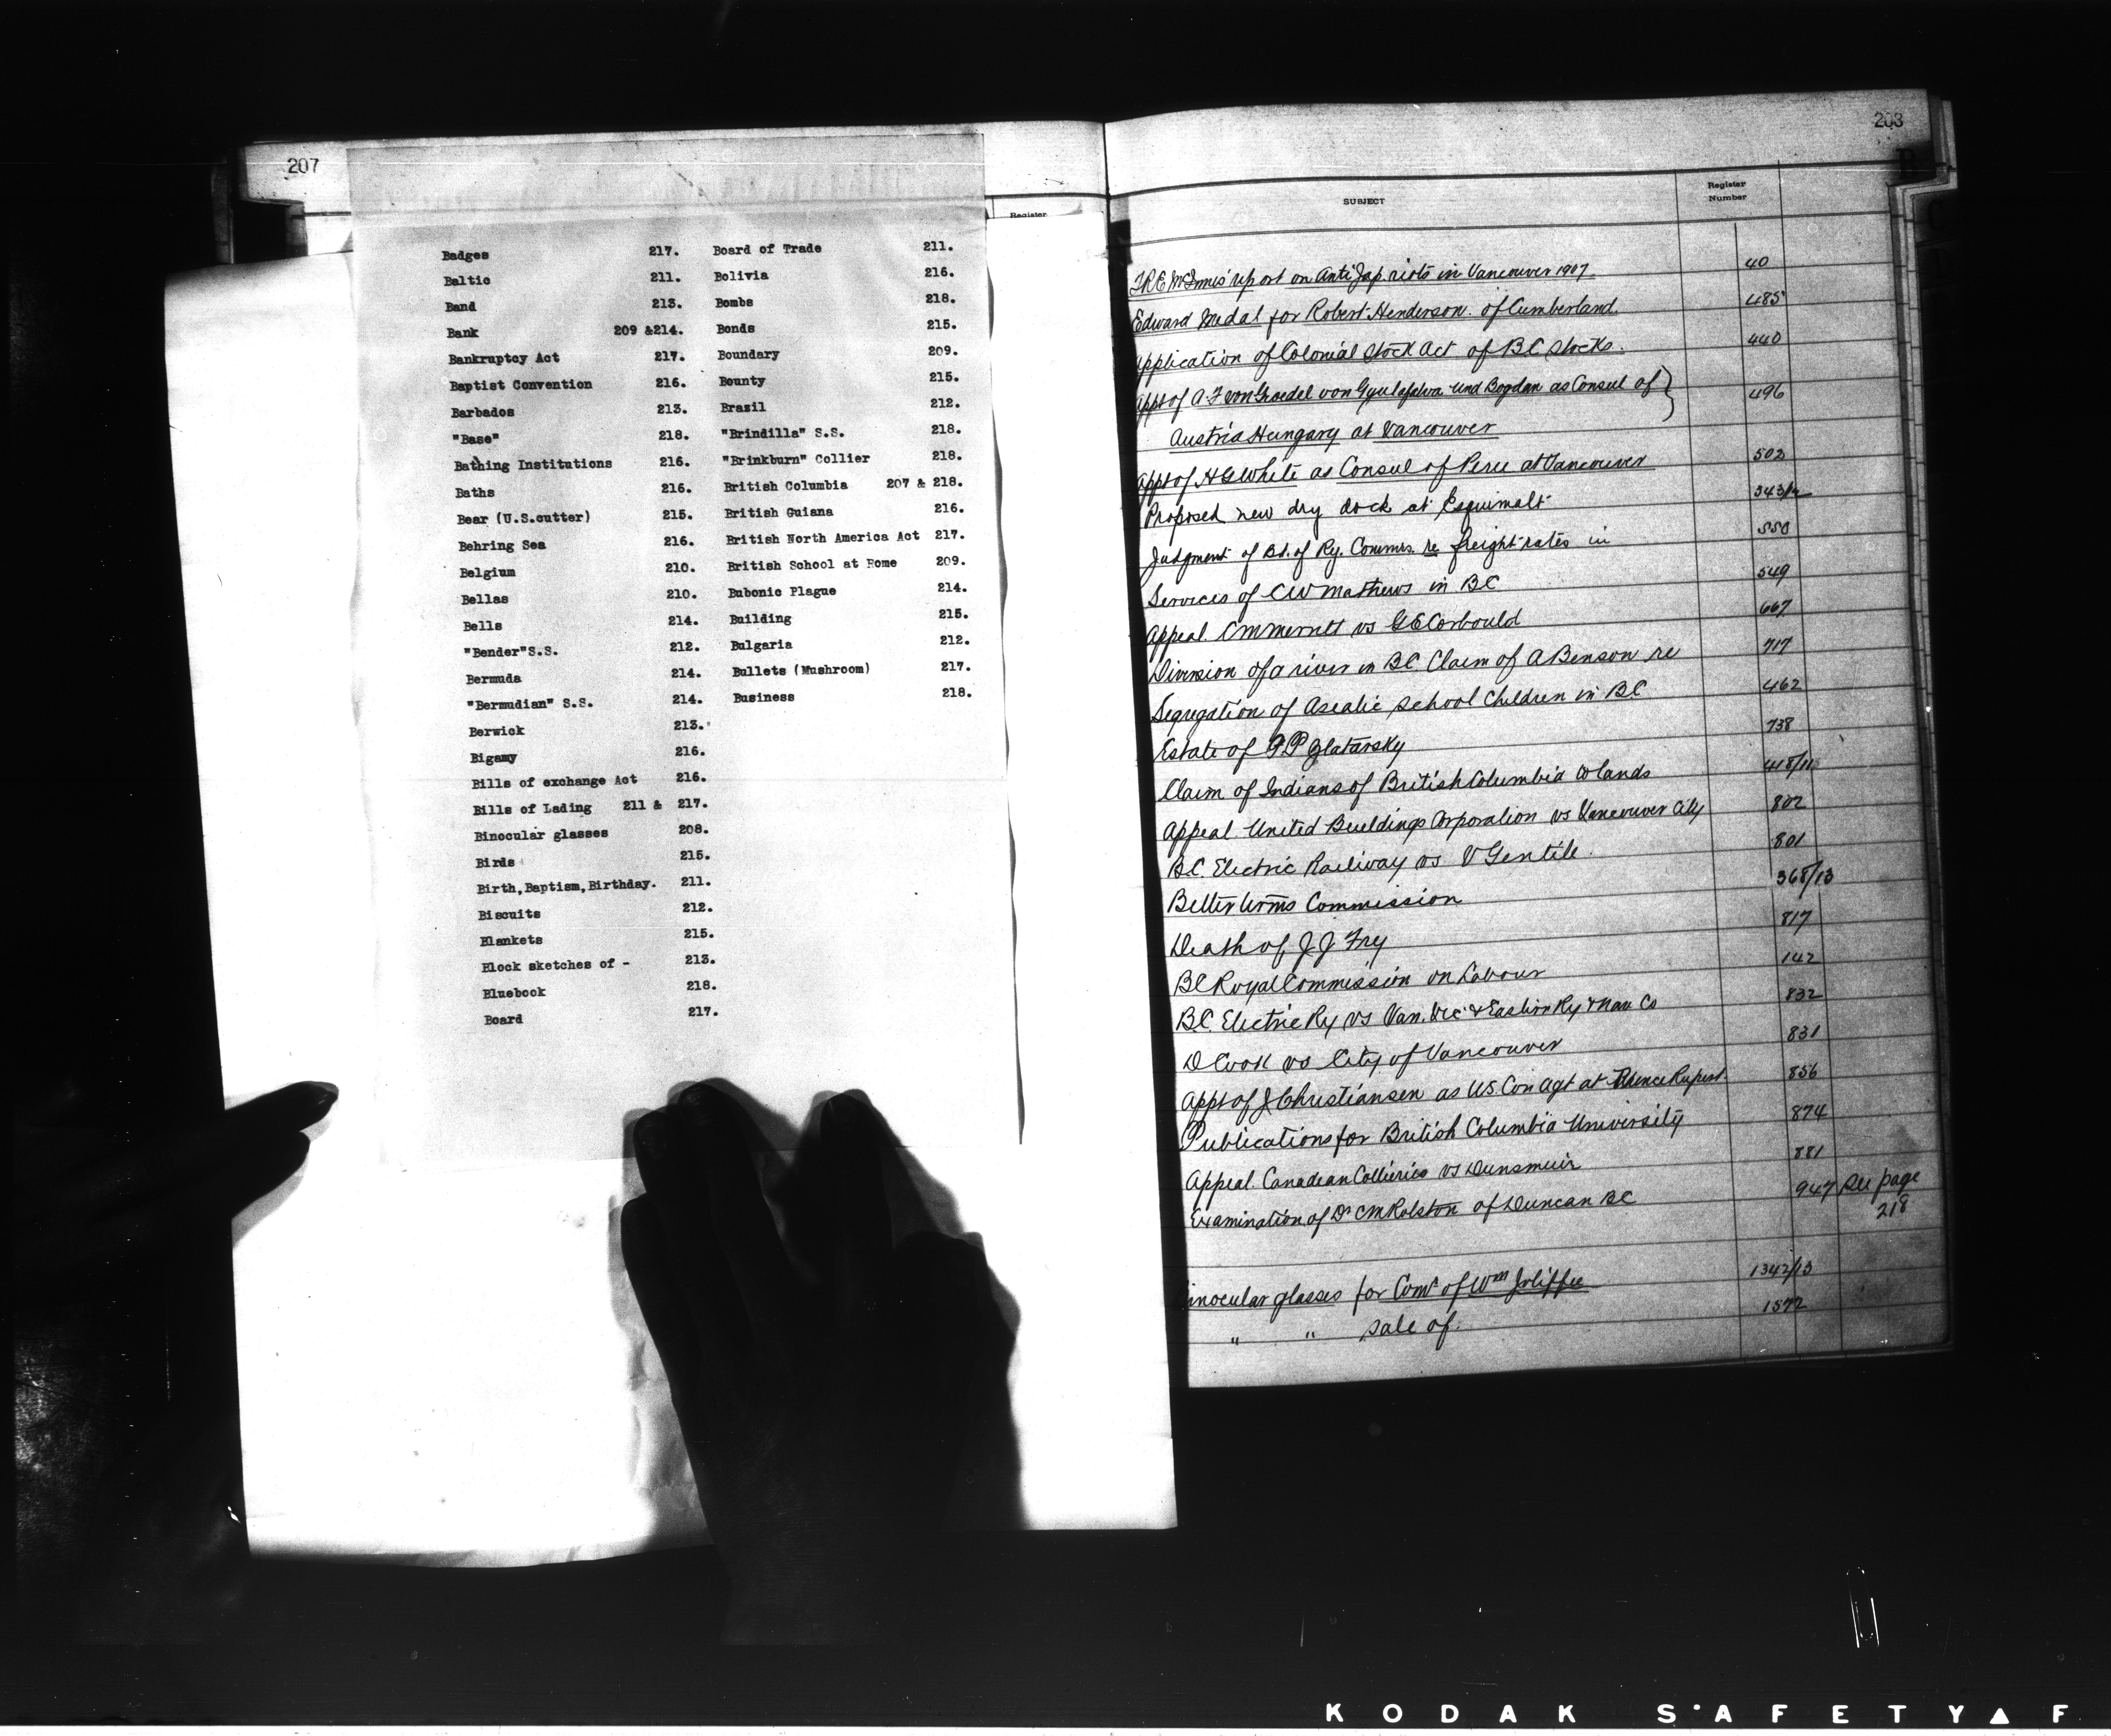 207
Register
Badges 217.
Baltic 211.
Band 213.
Bank 209 &214.
Bankruptcy Act 217.
Baptist Convention 216.
Barbados 213.
"Base" 218.
Bathing Institutions 216.
Baths 216.
Bear (U.S.cutter) 215.
Behring Sea 216.
Belgium 210.
Bellas 210.
Bells 214.
"Bender"S.S. 212.
Bermuda 214.
"Bermudian" S.S. 214.
Berwick 213.
Bigamy 216.
Bills of exchange Act 216.
Bills of Lading 211 & 217.
Binocular glasses 208.
Birds 215.
Birth,Baptism,Birthday. 211.
Biscuits 212.
Blankets 215.
Block sketches of - 213.
Bluebook 218.
Board 217.
Board of Trade 211.
Bolivia 216.
Bombs 218.
Bonds 215.
Boundary 209.
Bounty 215.
Brazil 212.
"Brindilla" S.S. 218.
"Brinkburn" Collier 218.
British Columbia 207 & 218.
British Guiana 216.
British North America Act 217.
British School at Rome 209.
Bubonic Plague 214.
Building 215.
Bulgaria 212.
Bullets (Mushroom) 217.
Business 218.
208
SUBJECT Register Number
T.R.E. McInnis' report on Anti Jap. riots in Vancouver 1907 40
Edward Medal for Robert Henderson of Cumberland. 485
Application of Colonial Stock Act of BC stocks. 440
Appt of A.F. von und Bogdan as Consul of } 496
Austria Hungary at Vancouver
Appt of H G White as Consul of Peru at Vancouver 502
Proposed new dry dock at Esquimalt 343/12
Judgment of Bd. of Ry. Commrs. re freight rates in 550
Services of CW Mathews in BC 549
Appeal. CM Merritt vs G E Corbould 667
Diversion of a river in BC. Claim of A Benson re 717
Segregation of Asiatic School Children in BC 462
Estate of Zlatarsky 738
Claim of Indians of British Columbia to lands 418/11
Appeal. United Buildings Corporation vs Vancouver City 802
BC. Electric Railway vs V Gentile. 801
Better terms Commission 368/13
Death of J J Fry 817
BC Royal Commission on Labour 142
BC. Electric Ry vs Van. Vic. & Eastern Ry & Nav Co 832
D Cook vs City of Vancouver 831
Appt of J Christiansen as US. Con Agt at Prince Rupert. 856
Publications for British Columbia University 874
Appeal. Canadian Collieries vs Dunsmuir 881
Examination of Dr CM Rolston of Duncan BC 947 See page
218
inocular glasses for Comr of Wm Joliffe 1342/13
" " sale of. 1572
KODAK SAFETY▲F